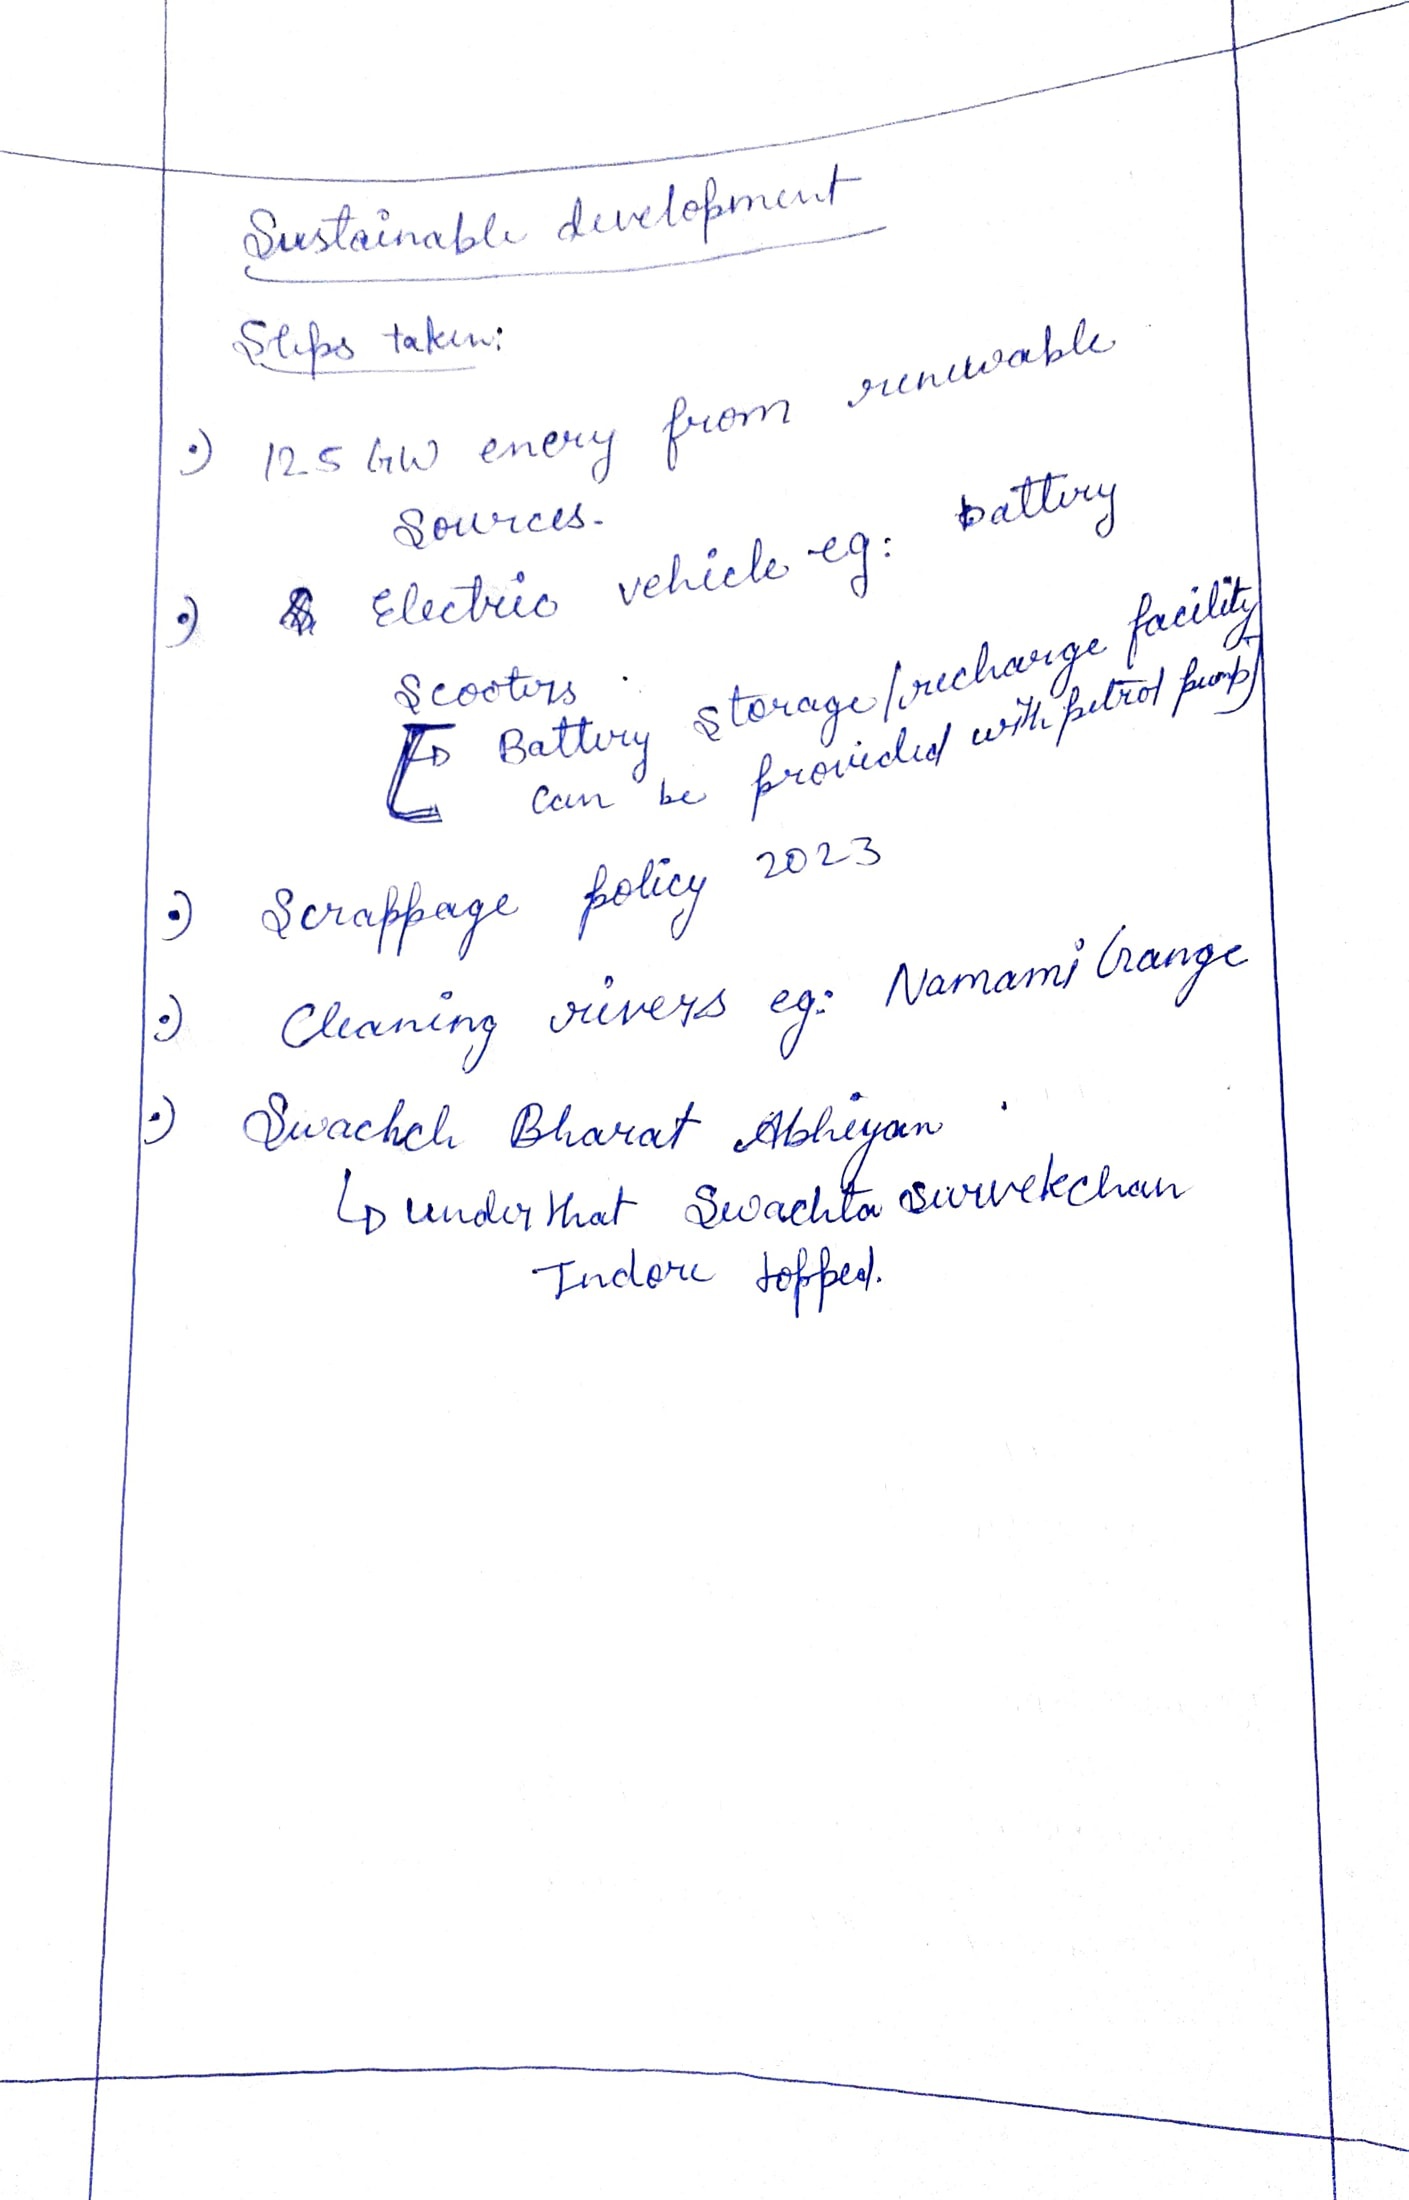 Sustainable development
Steps taken:
•) 125 GW enery from renewable
sources.
•) Electric vehicle eg: battery
Scooters
↳ Battery storage/recharge facility
can be provided with petrol pump
•) Scrappage policy 2023
•) Cleaning rivers eg: Namami Gange
•) Swachch Bharat Abhiyan
↳ under that Swachta survekchan
Indore topped.